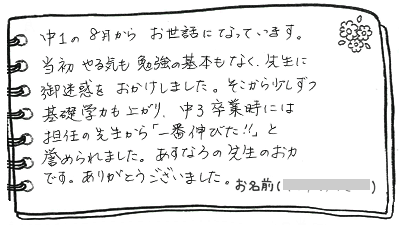 中1の 8月から お世話になっています。
当初 やる気も 勉強の基本もなく、先生に
御迷惑を おかけしました。そこから少しずつ
基礎学力も上がり、中3 卒業時には
担任の先生から「一番伸びた!!」と
誉められました。あすなろの先生のおカ
です。ありがとうございました。お名前( )